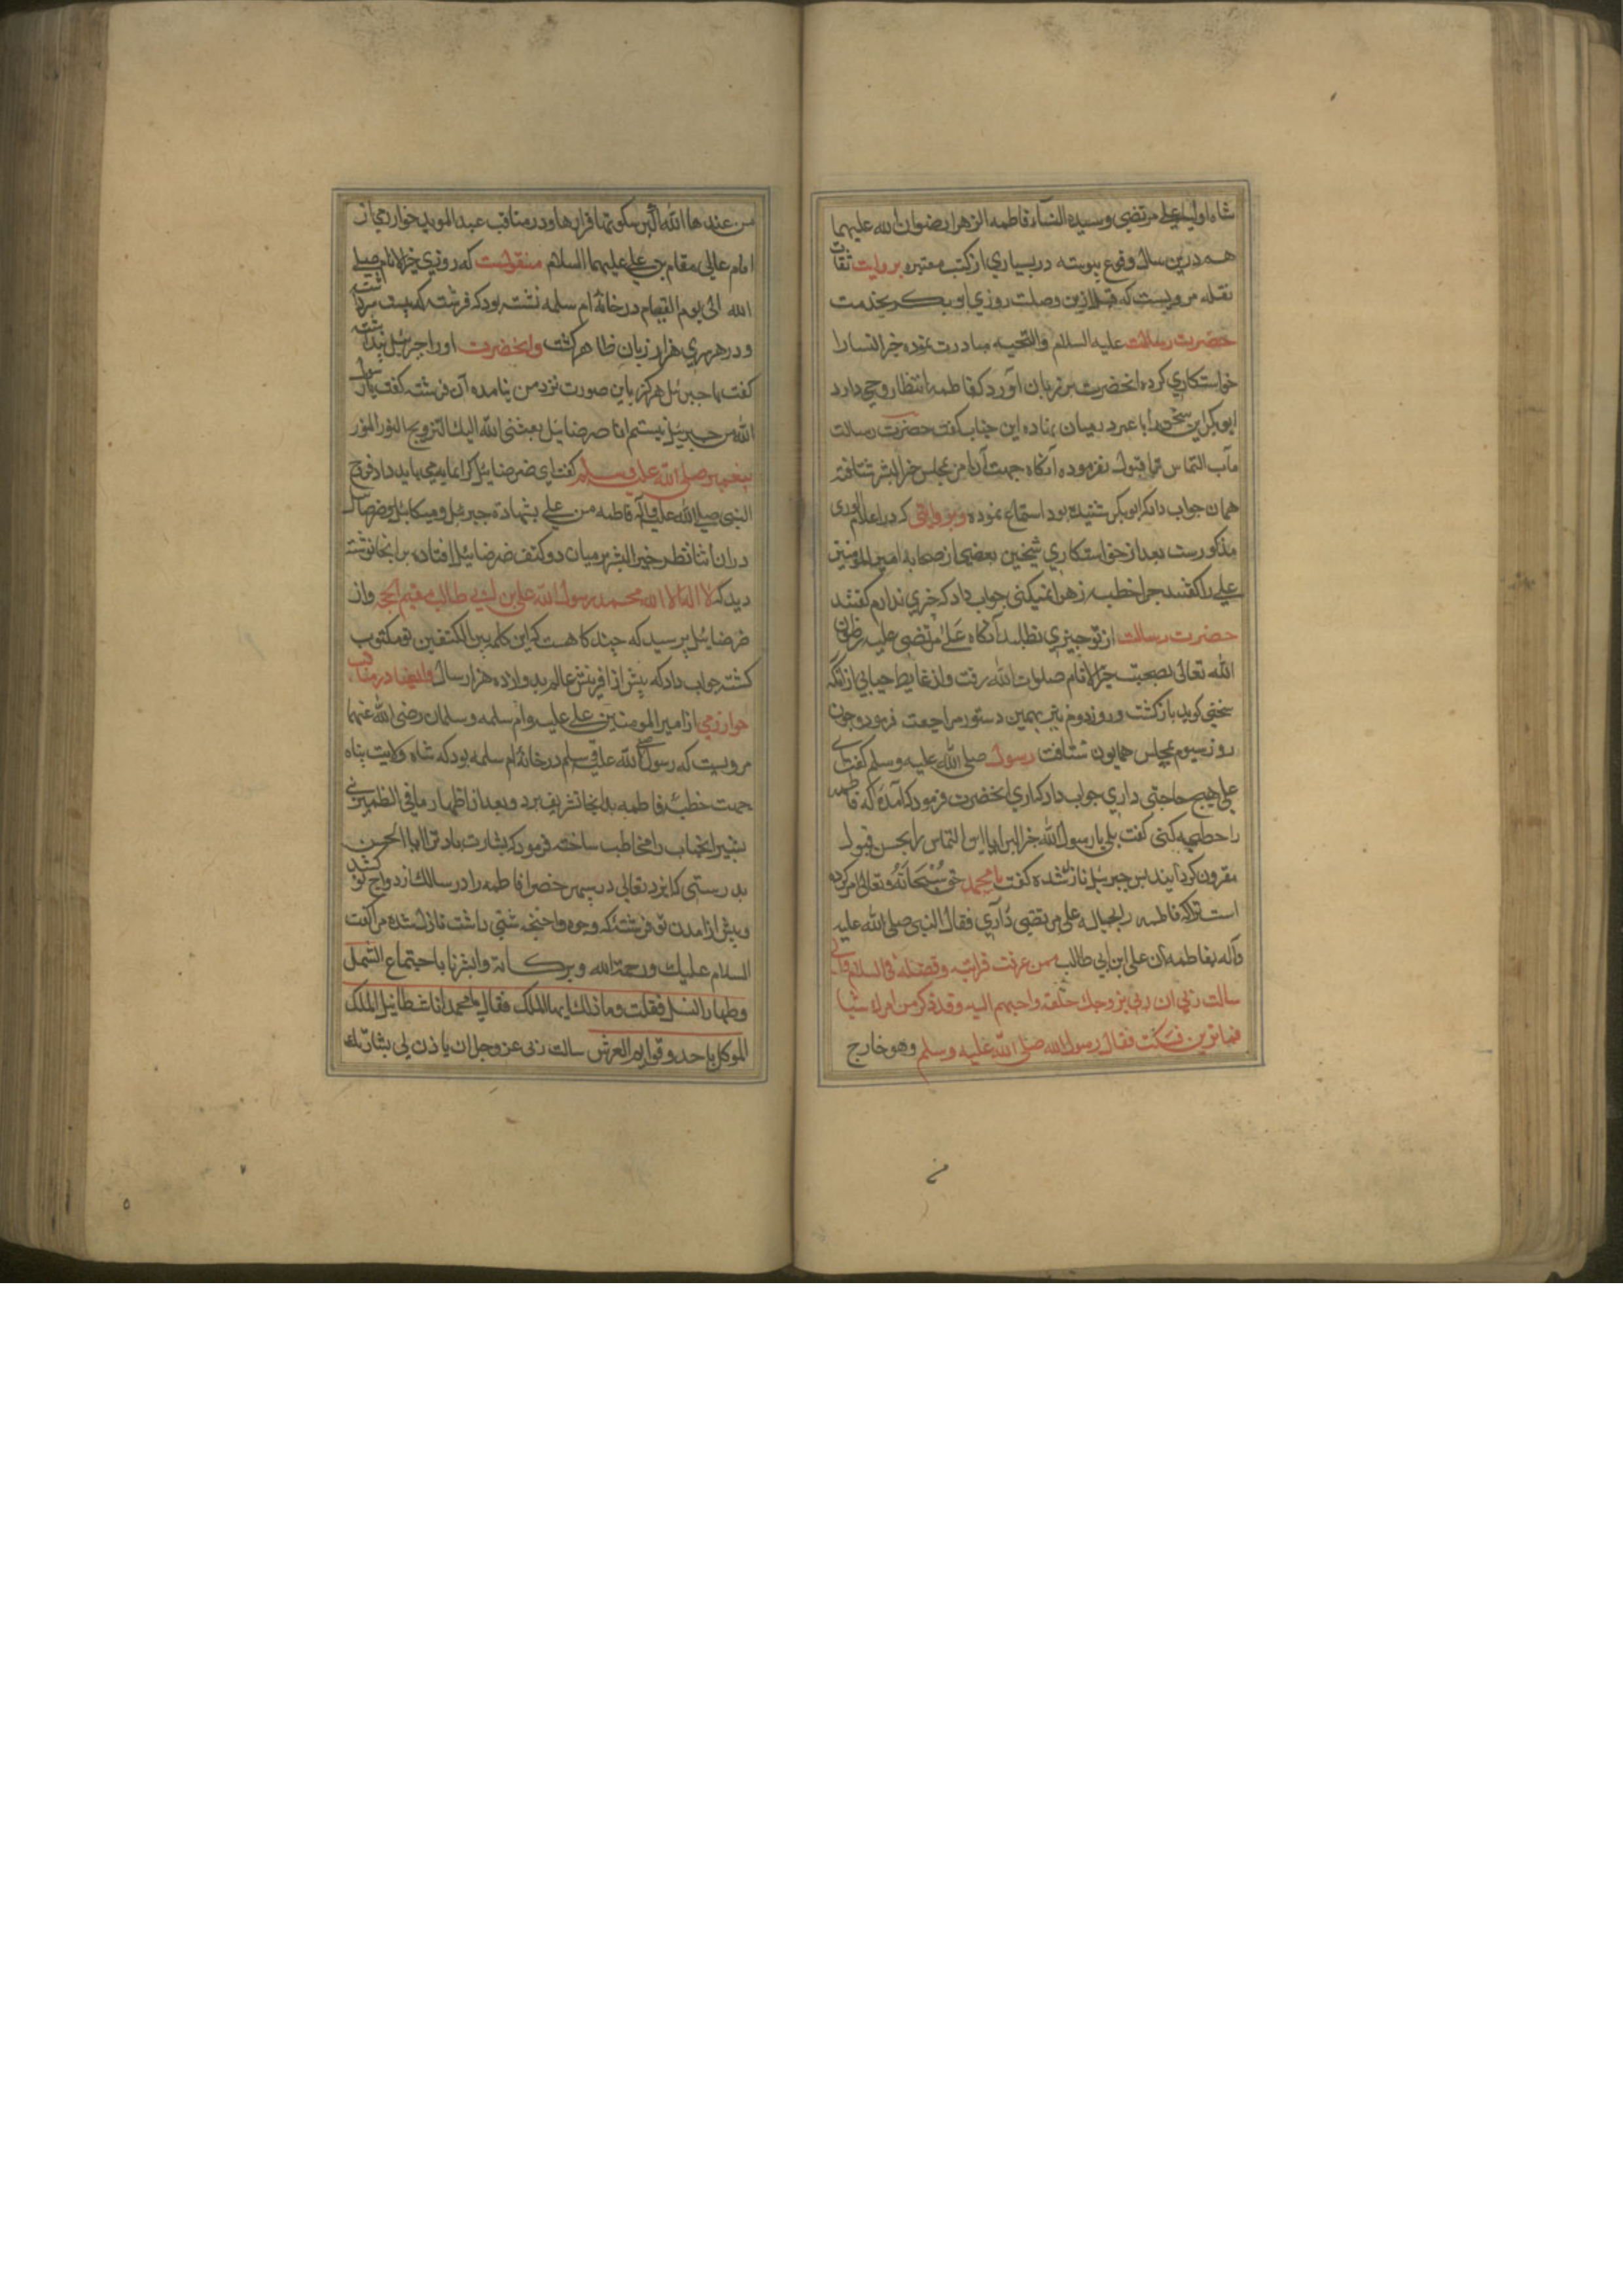 شاه اولیا علی مرتضی وسیدة النساء فاطمه الزهرا رضوان الله علیهما
همدرین سال وقوع پیوسته در بسیاری از کتب معتبره بروایت ثقات
نقله مرویست که قبل ازین وصلت روزی ابوبکر بخدمت
حضرت رسالت علیه السلام والتحیه مبادرت نموده خیر النسا را
خواستکاری کرد انحضرت بر زبان آورد که فاطمه انتظار وحی دارد
ابوبکر این سخن را با عمر در میان نهاده این جناب گفت حضرت رسالت
مآب التماس ترا قبول نفرموده آنگاه جهت آن امر بمجلس خیر البشر شتافته
همان جواب داد که ابوبکر شنیده بود استماع نموده وبروایتی که در اعلام الوری
مذکورست بعد از خواستکاری شیخین بعضی از صحابه امیر المومنین
علی را گفتند چرا خطب زهرا نمیکنی جواب داد که چیزی ندارم گفتند
حضرت رسالت از تو چیزی نطلبد آنگاه علی مرتضی علیه رضوان
الله تعالی بصحبت خیر الانام صلوات الله رفت و از غایت حیا بی ازانکه
سخنی کوید بازکشت و روز دوم نیز بهمین دستور مراجعت فرمود و چون
روز سیوم بمجلس همایون شتافت رسول صلی الله علیه وسلم گفت ای
علی هیچ حاجتی داری جواب داد که آری انحضرت فرمود که آمدهٔ که فاطمه
را خطبه کنی گفت بلی یا رسول الله خیر البرایا این التماس را بحسن قبول
مقرون گردانید پس جبرئیل نازل شده گفت یا محمد حق سبحانه وتعالی امر کرده
است ترا که فاطمه را بحباله علی مرتضی دراری فقال النبی صلی الله علیه
وآله یفاطمه ان علی ابن ابی طالب ممن عرفت قرابته وفضله فی السلام وانی
سالت ربی ان یزوجک خلقه واحبهم الیه وقد ذکر من امرک شیا
فما ترین فسکت فقال رسول الله صلی الله علیه وسلم وهو خارج
من عندها الله اکبر سکوتها اقرارها ودر مناقب عبد الموید خوارزمی از
امام عالی مقام علی علیهما السلام منقولست که روزی خیر الانام صلی
الله الی یوم القیام در خانهٔ ام سلمه نشسته بود که فرشته که بیست سر داشت
و در هر سری هزار زبان ظاهر کشت وانحضرت اورا جبرئیل پنداشته
گفت یا جبرئیل هرکز باین صورت نزد من نیامده آن فرشته گفت یا رسول
الله من جبرئیل نیستم انا صرضائیل بعثنی الله الیک لتزویج النور النور
پیغمبر صلی الله علیه وسلم گفت ای ضرضائیل کرا بکه می باید داد فزوج
النبی صلی الله علیه وآله فاطمه من علی بشهادة جبرئیل ومیکائیل وضرضائیل
دران اثنا نظر خیر البشر بر میان دو کتف ضرضائیل افتاده بر انجا نوشته
دید که لا اله الا الله محمد رسول الله علی بن ابی طالب مقیم الحجه واز
ضرضائیل پرسید که چند کاه است که این کلمه بین الکتفین تو مکتوب
کشته جواب داد که پیش از افرینش عالم بدوازده هزار سال وایضا در مناقب
خوارزمی از امیر المومنین علی علیه وام سلمه وسلمان رضی الله عنهما
مرویست که رسول صلی الله علیه وسلم در خانهٔ ام سلمه بود که شاه ولایت پناه
جهت خطبهٔ فاطمه بدانجا تشریف برد و بعد از اظهار ما فی الضمیر
بشیر انجناب را مخاطب ساخته فرمود که بشارت باد ترا یا ابا الحسن
بدرستی که ایزد تعالی در سپهر خضرا فاطمه را در سلک ازدواج تو کشید
وپیش از امدن تو فرشتهٔ که وجوه واجنحه شتی داشت نازل شده مرا گفت
السلام علیک ورحمة الله وبرکاته وابشر یا باجتماع الشمل
وطهارة النسل فقلت وما ذلک ایها الملک فقال یا محمد انا شطائیل الملک
الموکل باحد وقوایم العرش سالت ربی عز وجل ان یاذن لی بشارتک